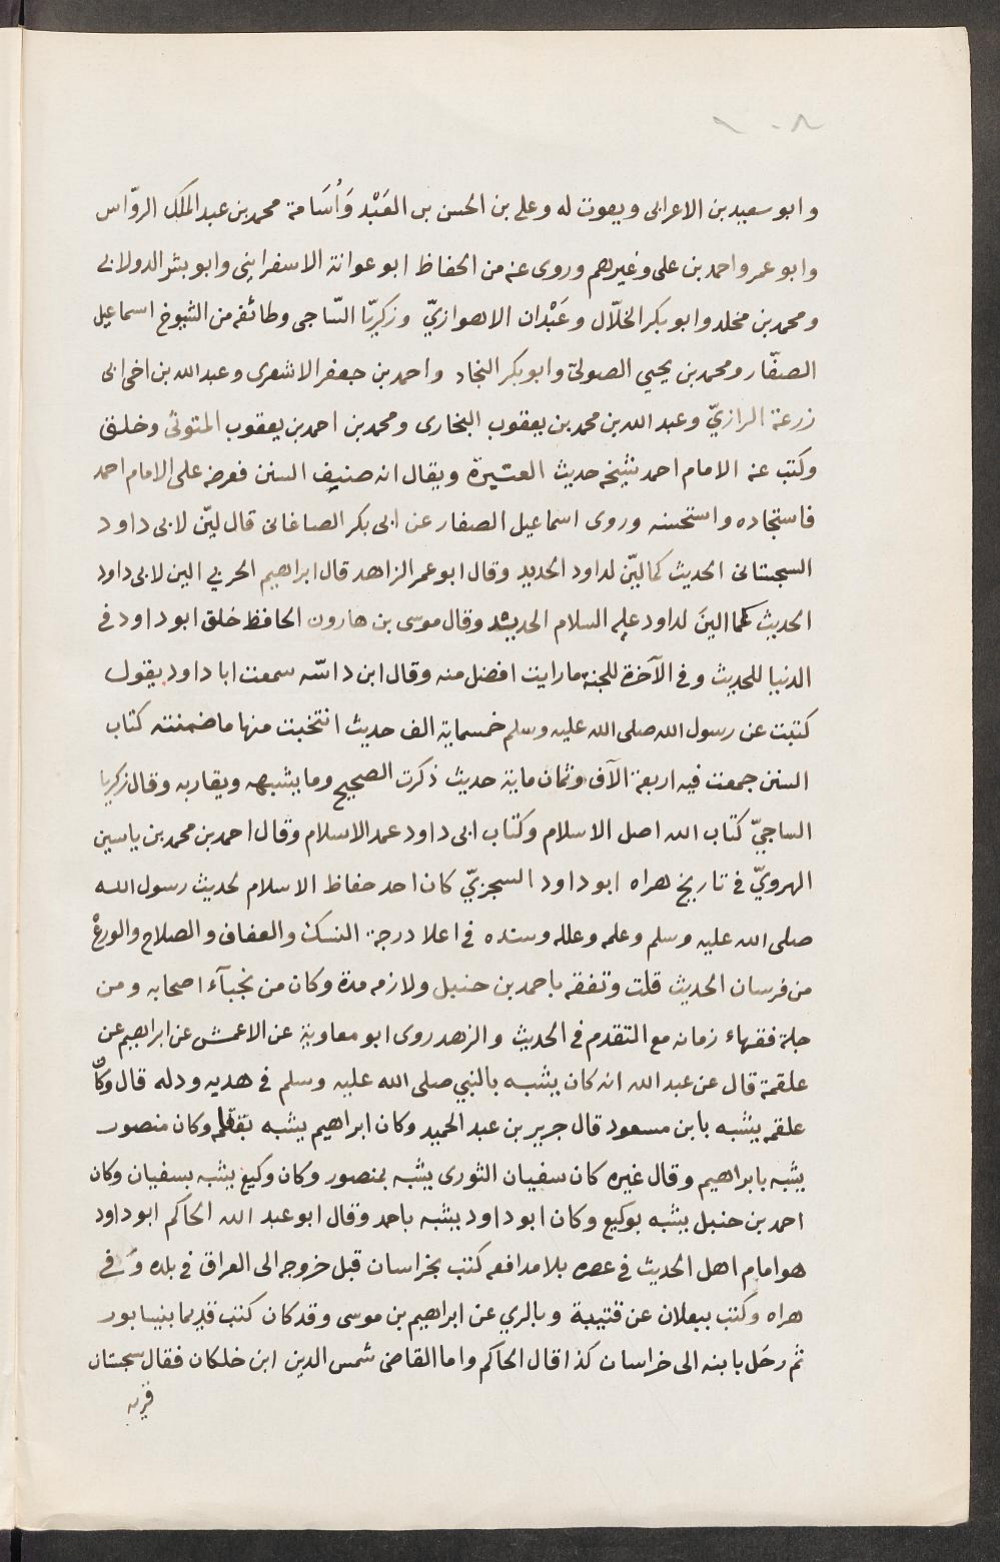 ١٠٨
وابو سعيد بن الاعرابى ويفوت له وعلى بن الحسن بن العَبْد وَأُسَامة محمد بن عبد الملك الروّاس
وابو عمرو احمد بن على وغيرهم وروى عنه من الحفاظ ابو عوانة الاسفراينى وابو بشر الدولابى
ومحمد بن مخلد وابو بكر الخلّال وعَبْدان الاهوازيّ وزكريّا السّاجى وطائفه من الشيوخ اسماعيل
الصفّار ومحمد بن يحيى الصولىّ وابو بكر النجاد واحمد بن جعفر الاشعرى وعبد الله بن اخى ابى
زرعة الرازيّ وعبد الله بن محمد بن يعقوب البخارى ومحمد بن احمد بن يعقوب المتوثى وخلق
وكتب عنه الامام احمد شيخه حديث العتيرة ويقال انه صنيف السنن فعرضه على الامام احمد
فاستجاده واستحسنه وروى اسماعيل الصفار عن ابى بكر الصاغانى قال ليّن لابى داود
السجستانى الحديث كما ليّن لداود الحديد وقال ابو عمر الزاهد قال ابراهيم الحربي الين لابى داود
الحديث كما الينَ لداود عليه السلام الحديد وقال موسى بن هارون الحافظ خلق ابو داود فى
الدنيا للحديث وفى الآخرة للجنة ما رايت افضل منه وقال ابن داسّه سمعت ابا داود يقول
كتبت عن رسول الله صلى الله عليه وسلم خمسماية الف حديث انتخبت منها ما ضمنته كتاب
السنن جمعت فيه اربعة الآف وثمان ماية حديث ذكرت الصحيح وما يشبهه ويقاربه وقال زكريا
الساجيّ كتاب الله اصل الاسلام وكتاب ابى داود عمد الاسلام وقال احمد بن محمد بن ياسين
الهرويّ فى تاريخ هراه ابو داود السجزيّ كان احد حفاظ الاسلام لحديث رسول الله
صلى الله عليه وسلم وعلمه وعلله وسنده فى اعلا درجة النسك والعفاف والصلاح والورع
من فرسان الحديث قلت وتفقه باحمد بن حنبل ولازمه مدة وكان من نجبآء اصحابه ومن
جلة فقهاء زمانه مع التقدم فى الحديث والزهد روى ابو معاوية عن الاعمش عن ابراهيم عن
علقمة قال عن عبد الله انه كان يشبه بالنبي صلى الله عليه وسلم فى هديه ودله قال وكان
علقمه يشبه بابن مسعود قال جرير بن عبد الحميد وكان ابراهيم يشبه بعلقمه وكان منصور
يشبه بابراهيم وقال غيره كان سفيان الثورى يشبه بمنصور وكان وكيع يشبه بسفيان وكان
احمد بن حنبل يشبه بوكيع وكان ابو داود يشبه باحمد وقال ابو عبد الله الحاكم ابو داود
هو امام اهل الحديث فى عصره بلا مدافعه كتب بخراسان قبل خروجه الى العراق فى بلده وفي
هراه وكتب ببعلان عن قتيبة وبالري عن ابراهيم بن موسى وقد كان كتب قديما بنيسابور
ثم رحَل بابنه الى خراسان كذا قال الحاكم واما القاضى شمس الدين ابن خلكان فقال سجستان
قريه